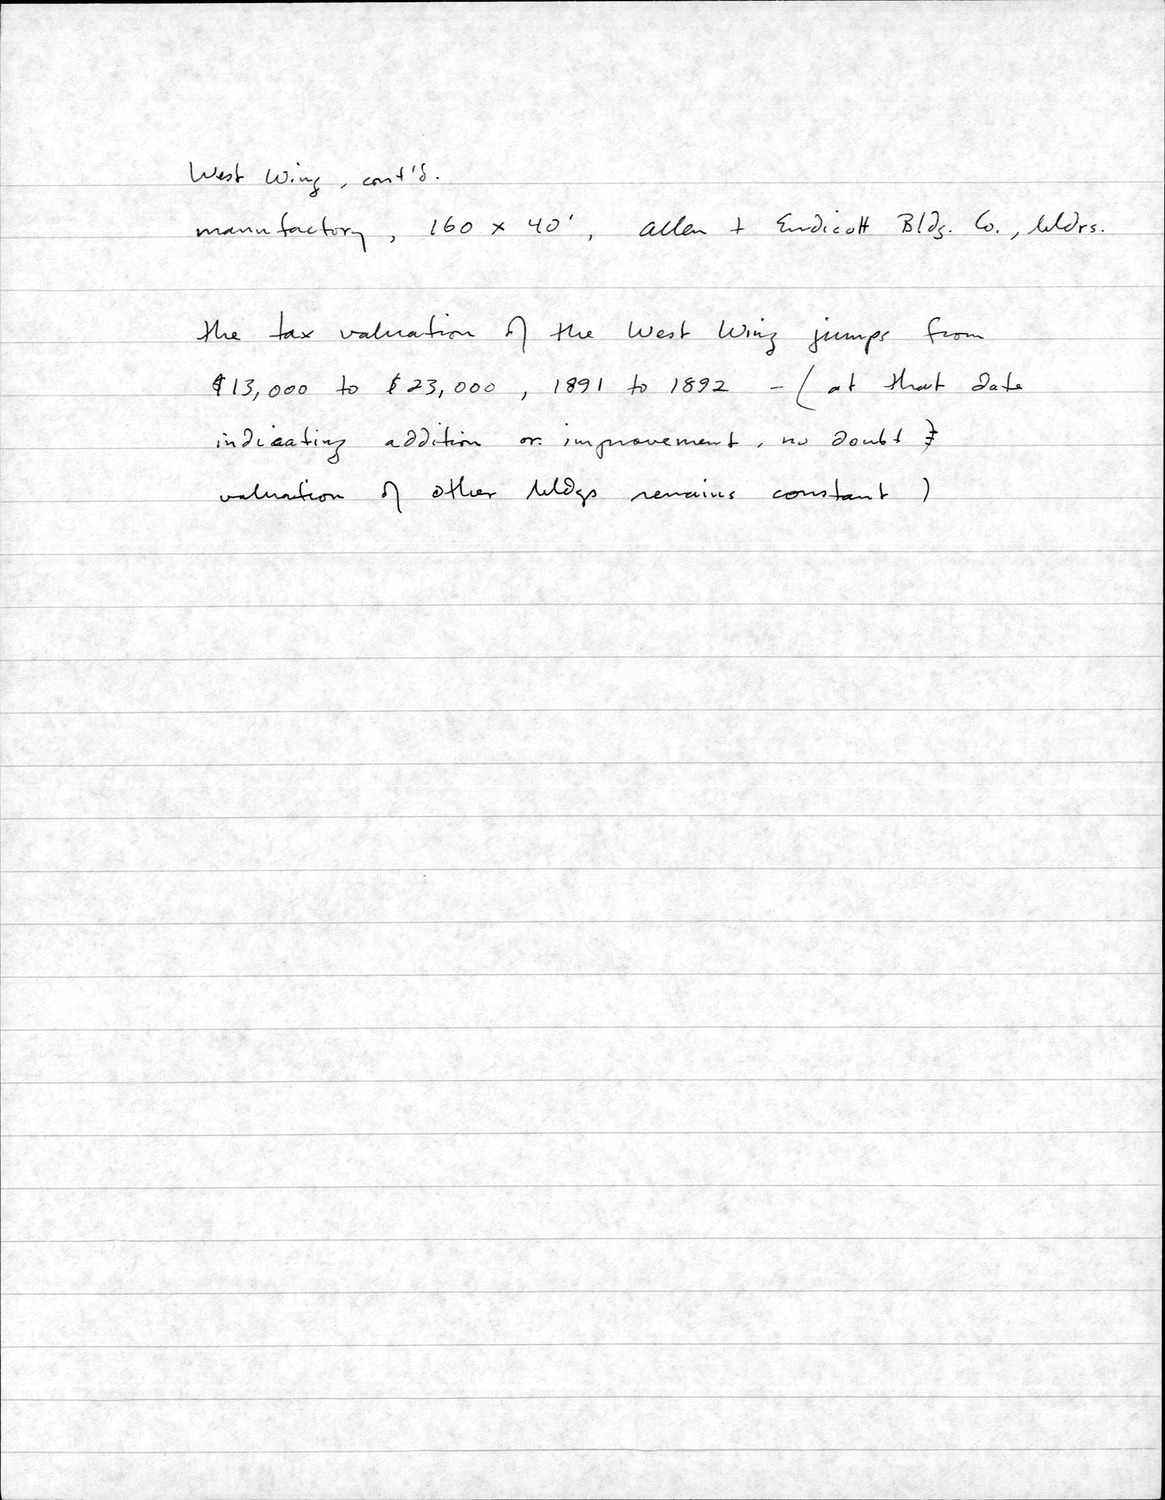 West Wing, cont'd.
manufactory, 160 x 40', Allen + Endicott Bldg. Co., bldrs.
the tax valuation of the West Wing jumps from
$13,000 to $23,000, 1891 to 1892 - (at that date
indicating addition or improvement, no doubt &
valuation of other bldgs remains constant)